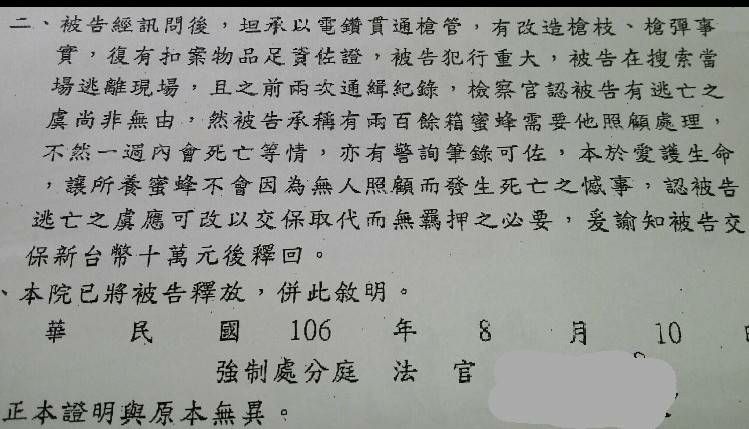 二、被告經訊問後，坦承以電鑽貫通槍管，有改造槍枝、槍彈事
實，復有扣案物品足資佐證，被告犯行重大，被告在搜索當
場逃離現場，且之前兩次通緝紀錄，檢察官認被告有逃亡之
虞尚非無由，然被告承稱有兩百餘箱蜜蜂需要他照顧處理，
不然一週內會死亡等情，亦有警詢筆錄可佐，本於愛護生命
，讓所養蜜蜂不會因為無人照顧而發生死亡之憾事，認被告
逃亡之虞應可改以交保取代而無羈押之必要，爰諭知被告交
保新台幣十萬元後釋回。
、本院已將被告釋放，併此敘明。
華 民 國 106 年 8 月 10
強制處分庭 法 官
正本證明與原本無異。